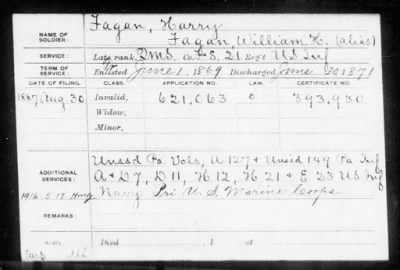 Fagan, Harry
NAME OF SOLDIER: Fagan, William H. (alias)
SERVICE: Late rank, Co. 21 Reg't US Inf
TERM OF SERVICE: Enlisted June 1, 1869 Discharged June 1871
DATE OF FILING. CLASS. APPLICATION NO. LAW. CERTIFICATE NO.
1887 Aug 30 Invalid, 621,063 393,930
Widow,
Minor,
Unssd Pa. Vols, A 127 & Unssd 149 Pa Inf
ADDITIONAL SERVICES: A & D 7, D 11, H 12, H 21 & E 23 US Inf
1916-5-17 Navy Pri U.S. Marine Corps
REMARKS:
Died , 1 , at